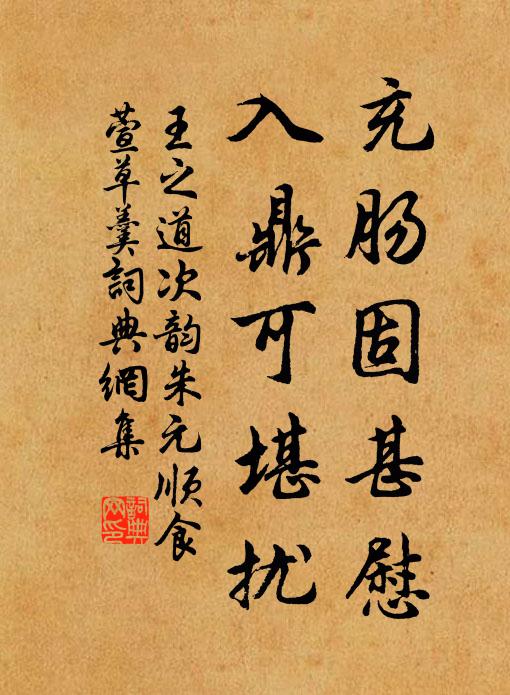 充肠固甚慰
入鼎可堪扰
王之道次韵朱元顺食
萱草羹詞典網集
詞典网印